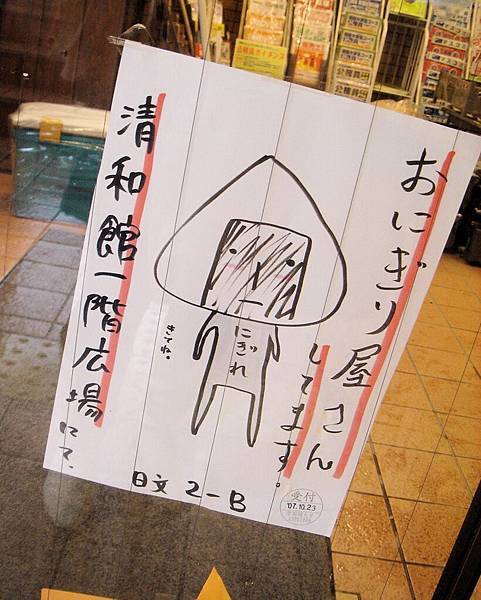 おにぎり屋さん
してます。
にぎれ
きてね。
清和館一階広場にて、
日文 2-B
受付
'07.10.23